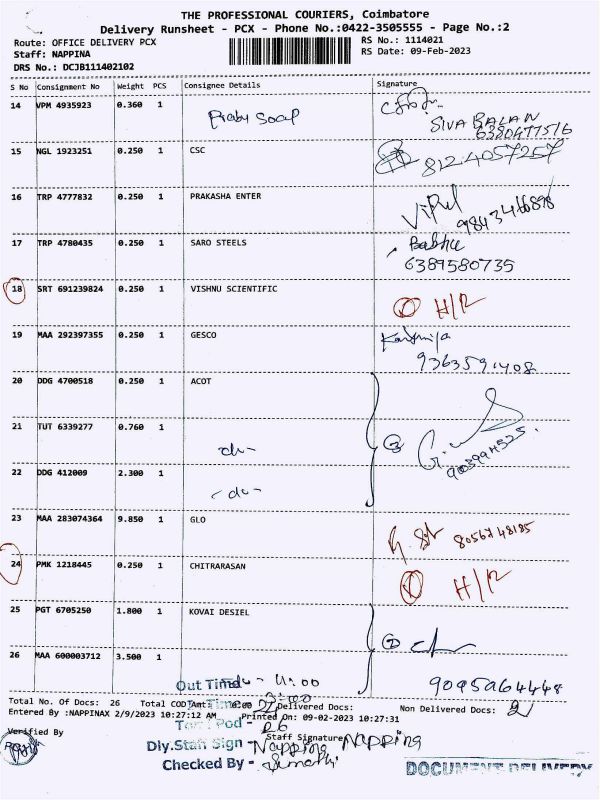 THE PROFESSIONAL COURIERS, Coimbatore
Delivery Runsheet - PCX - Phone No.:0422-3505555 - Page No.:2
Route: OFFICE DELIVERY PCX RS No.: 1114021
Staff: NAPPINA RS Date: 09-Feb-2023
DRS No.: DCJB111402102
S No Consignment No Weight PCS Consignee Details Signature
14 VPM 4935923 0.360 1 Praby Soap
SIVA BALAN
6380477516
15 NGL 1923251 0.250 1 CSC 8124057257
16 TRP 4777832 0.250 1 PRAKASHA ENTER Vipul
9843466898
17 TRP 4780435 0.250 1 SARO STEELS
6389580735
18 SRT 691239824 0.250 1 VISHNU SCIENTIFIC H/R
19 MAA 292397355 0.250 1 GESCO
9363591408
20 DDG 4700518 0.250 1 ACOT
21 TUT 6339277 0.760 1 -do- 3
22 DDG 412009 2.300 1 -do-
23 MAA 283074364 9.850 1 GLO 8056748185
24 PMK 1218445 0.250 1 CHITRARASAN H/R
25 PGT 6705250 1.800 1 KOVAI DESIEL 2
26 MAA 600003712 3.500 1
9095964448
Out Time - 11:00
Total No. Of Docs: 26 Total COD Amt: 0.00 Delivered Docs: Non Delivered Docs: 2
Entered By :NAPPINAX 2/9/2023 10:27:12 AM Printed On: 09-02-2023 10:27:31
Pod - 26
Verified By Staff Signature
Dly.Stan Sign - Nappina Nappina
Checked By -
DOCUMENT DELIVERY